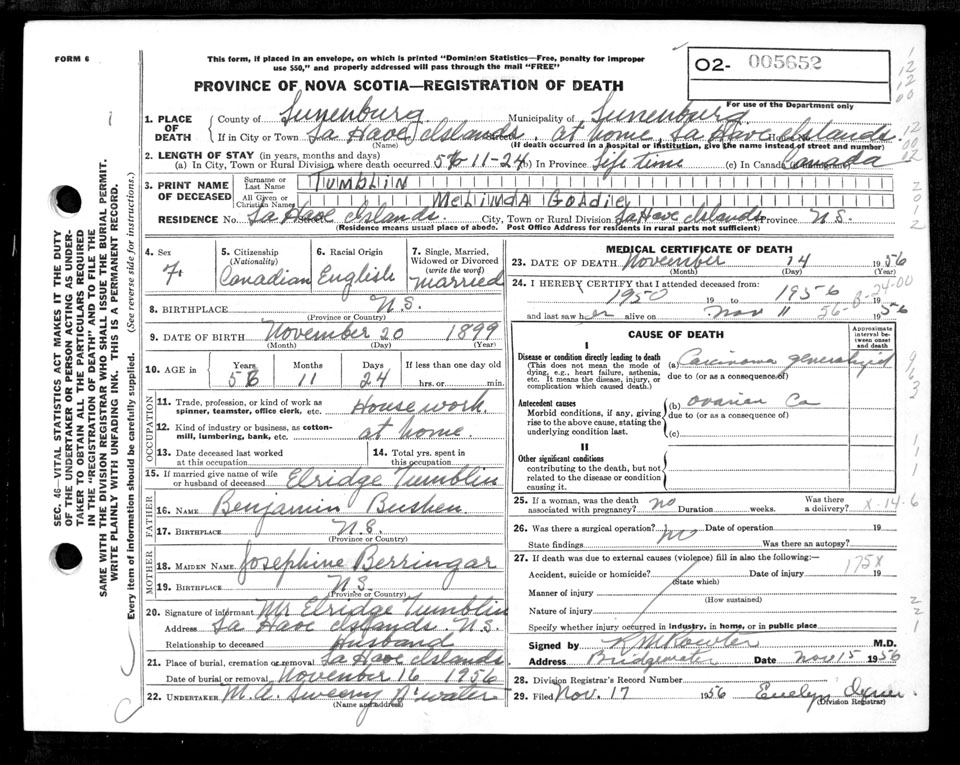 FORM 6
This form, if placed in an envelope, on which is printed "Dominion Statistics—Free, penalty for improper
use $50," and properly addressed will pass through the mail "FREE"
O2- 005652
PROVINCE OF NOVA SCOTIA—REGISTRATION OF DEATH
For use of the Department only
1. PLACE OF DEATH
County of Lunenburg Municipality of Lunenburg
If in City or Town La Have Islands. at home, La Have Islands.
(Name) (If death occurred in a hospital or institution, give the name instead of street and number)
2. LENGTH OF STAY (in years, months and days)
(a) In City, Town or Rural Division where death occurred 56-11-24 (b) In Province Life time (c) In Canada Canada
3. PRINT NAME OF DECEASED
Surname or Last Name Tumblin
All Given or Christian Names Melinda Goldie
RESIDENCE No. La Have Islands. City, Town or Rural Division La Have Islands Province N.S.
(Residence means usual place of abode. Post Office Address for residents in rural parts not sufficient)
4. Sex F.
5. Citizenship (Nationality) Canadian
6. Racial Origin English
7. Single, Married, Widowed or Divorced (write the word) Married
8. BIRTHPLACE N.S.
(Province or Country)
9. DATE OF BIRTH November 20 1899
(Month) (Day) (Year)
10. AGE in Years 56 Months 11 Days 24 If less than one day old
hrs. or min.
OCCUPATION
11. Trade, profession, or kind of work as spinner, teamster, office clerk, etc. House work.
12. Kind of industry or business, as cotton-mill, lumbering, bank, etc. at home.
13. Date deceased last worked at this occupation
14. Total yrs. spent in this occupation
15. If married give name of wife or husband of deceased Elridge Tumblin
FATHER
16. NAME Benjamin Bushen
17. BIRTHPLACE N.S.
(Province or Country)
MOTHER
18. MAIDEN NAME Josephine Berringar
19. BIRTHPLACE N.S
(Province or Country)
20. Signature of informant Mr Elridge Tumblin
Address La Have Islands. N.S.
Relationship to deceased Husband
21. Place of burial, cremation or removal La Have Islands
Date of burial or removal November 16 1956
22. UNDERTAKER M.A. Sweeny B'water
(Name and address)
MEDICAL CERTIFICATE OF DEATH
23. DATE OF DEATH November 14 1956
(Month) (Day) (Year)
24. I HEREBY CERTIFY that I attended deceased from:
1950 19 to 1956 19
and last saw her alive on Nov 11 56 1956
8-24-00
CAUSE OF DEATH
Approximate interval between onset and death
I
Disease or condition directly leading to death
(This does not mean the mode of dying, e.g., heart failure, asthma, etc. It means the disease, injury, or complication which caused death.)
(a) Carcinoma generalized
due to (or as a consequence of)
Antecedent causes
Morbid conditions, if any, giving rise to the above cause, stating the underlying condition last.
(b) ovarian Ca
due to (or as a consequence of)
(c)
II
Other significant conditions
contributing to the death, but not related to the disease or condition causing it.
25. If a woman, was the death associated with pregnancy? no Duration weeks. Was there a delivery? X-14-6
26. Was there a surgical operation? no Date of operation 19
State findings Was there an autopsy?
27. If death was due to external causes (violence) fill in also the following:
Accident, suicide or homicide? Date of injury 19
175X
(State which)
Manner of injury
(How sustained)
Nature of injury
Specify whether injury occurred in industry, in home, or in public place
Signed by M.D.
Address Bridgewater Date Nov 15 1956
28. Division Registrar's Record Number
29. Filed Nov. 17 1956 Evelyn
(Division Registrar)
SEC. 46—VITAL STATISTICS ACT MAKES IT THE DUTY
OF THE UNDERTAKER OR PERSON ACTING AS UNDER-
TAKER TO OBTAIN ALL THE PARTICULARS REQUIRED
IN THE "REGISTRATION OF DEATH" AND TO FILE THE
SAME WITH THE DIVISION REGISTRAR WHO SHALL ISSUE THE BURIAL PERMIT.
WRITE PLAINLY WITH UNFADING INK. THIS IS A PERMANENT RECORD.
Every item of information should be carefully supplied. (See reverse side for instructions.)